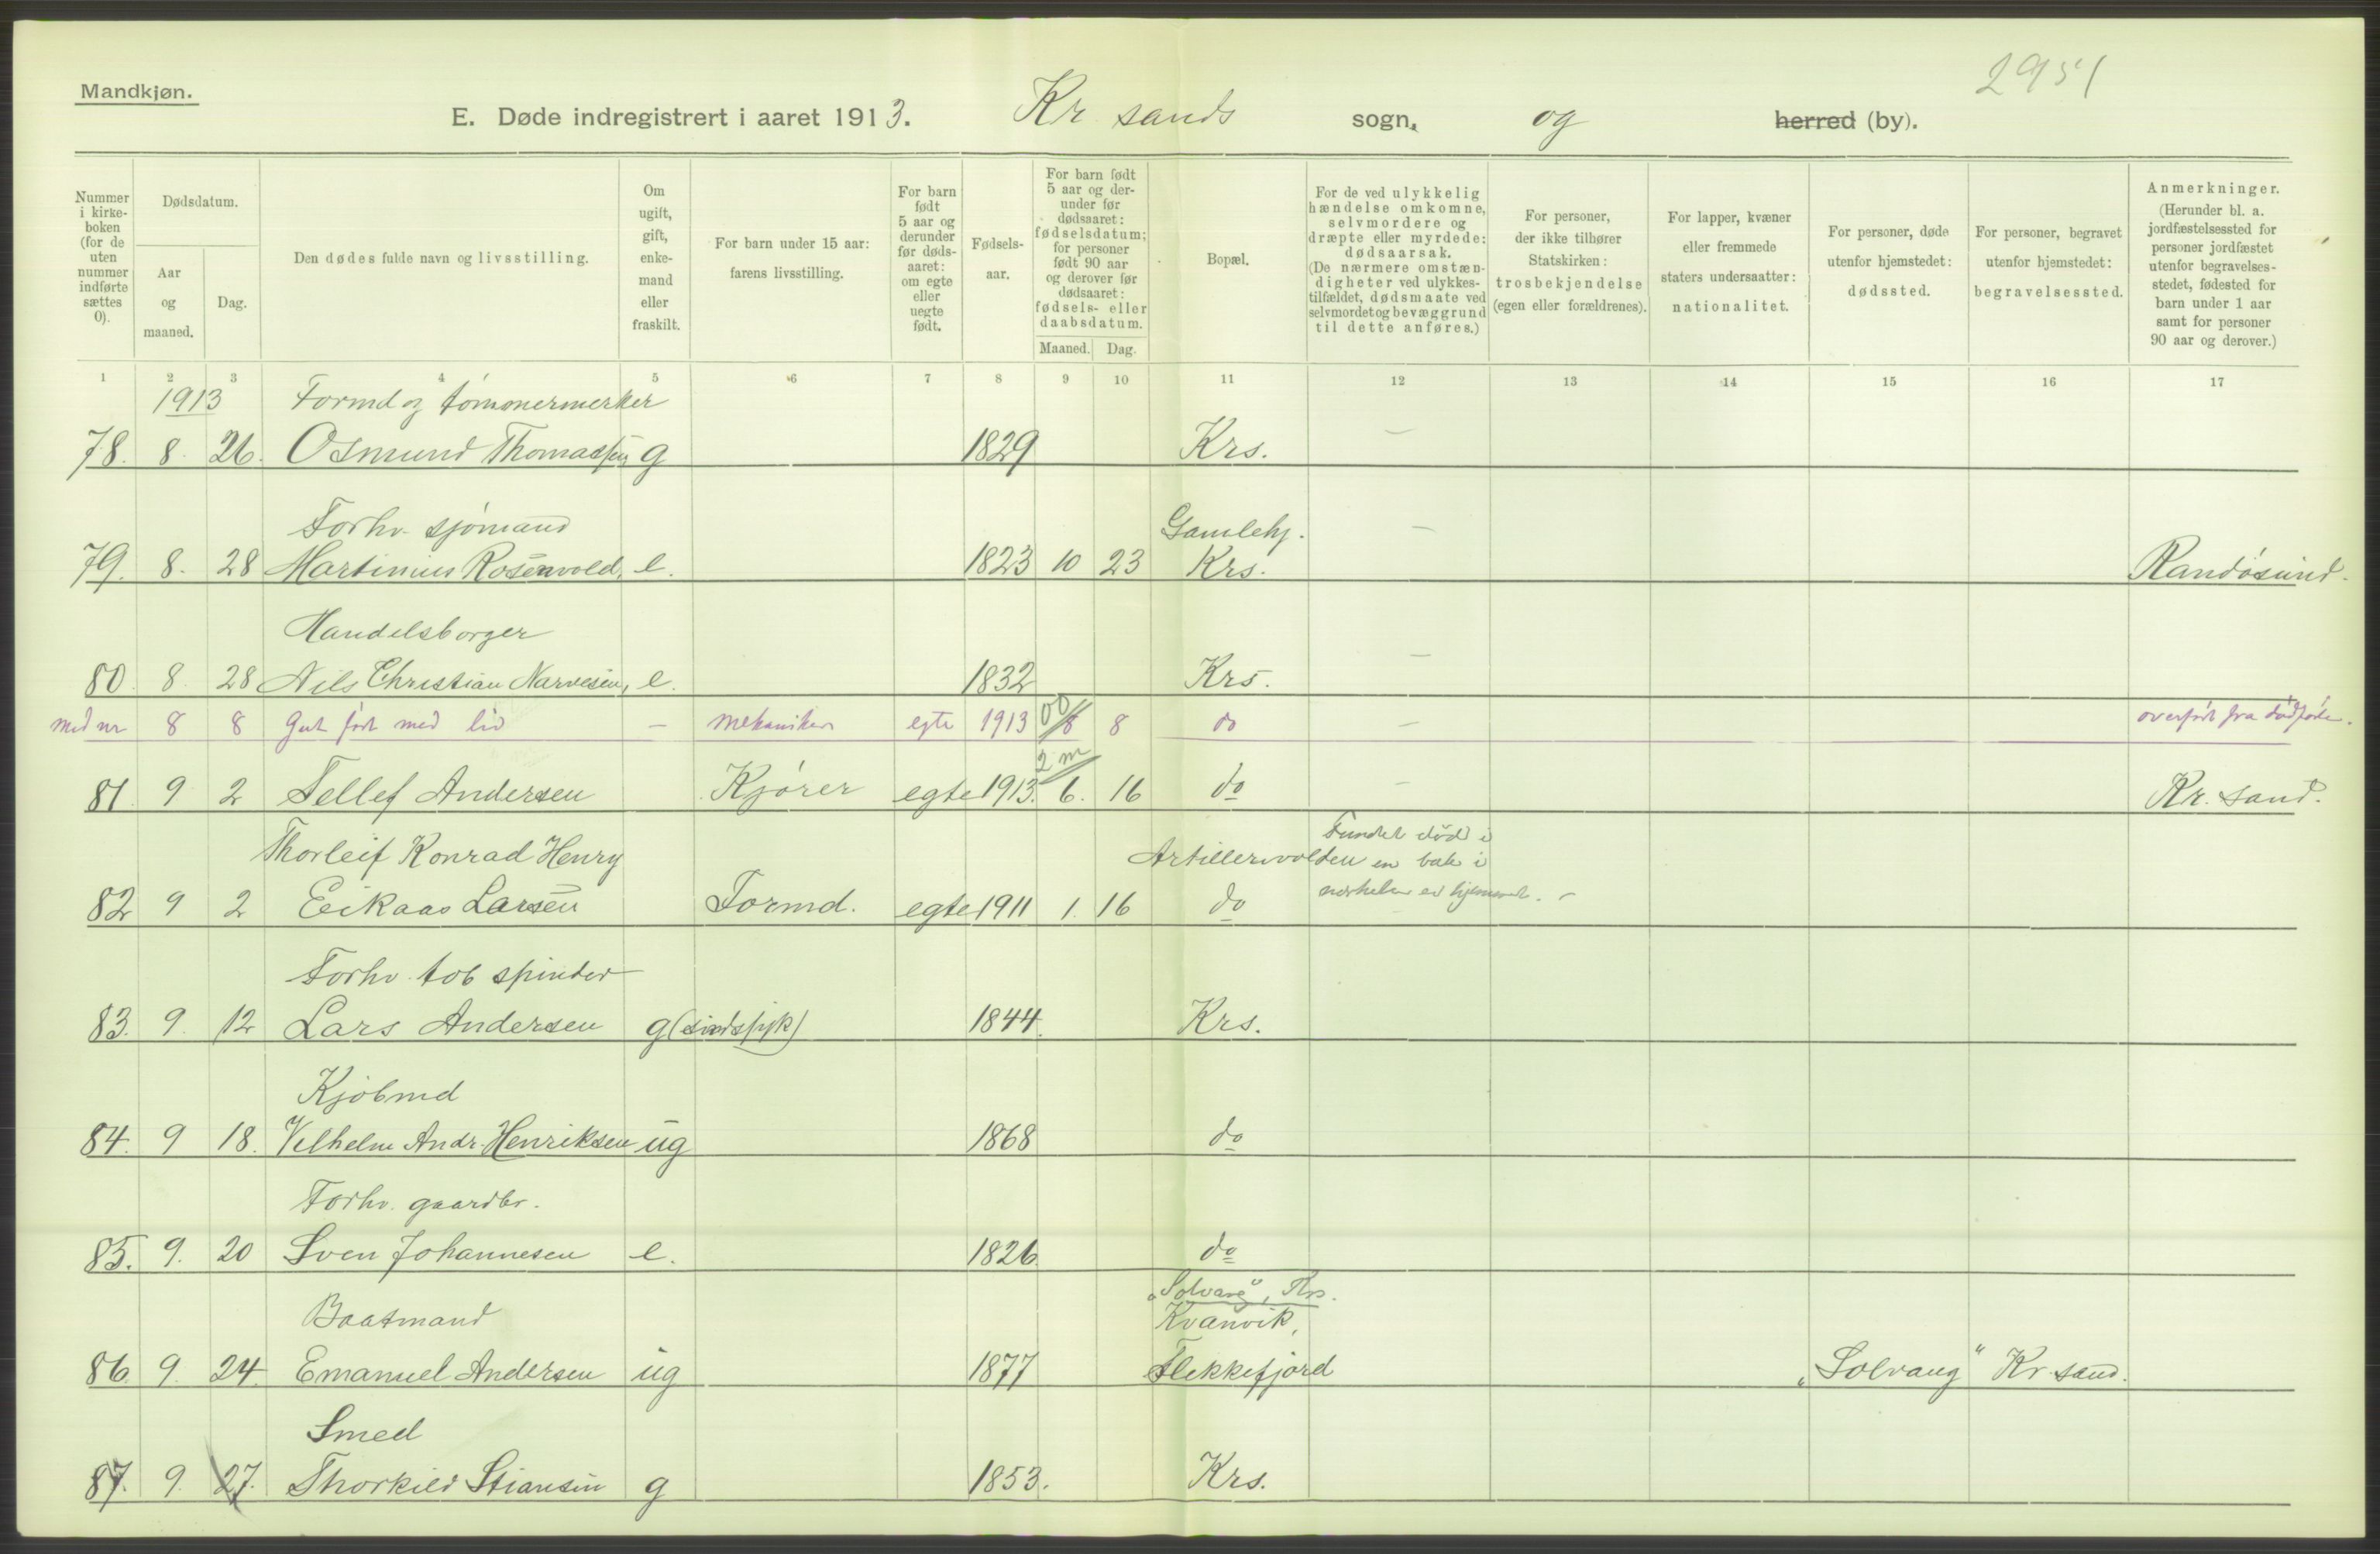 2951
Mandkjøn.
E. Døde indregistrert i aaret 1913. Kr sands sogn, og herred (by).
Nummer i kirke-boken (for de uten nummer indførte sættes 0).
Dødsdatum.
Aar og maaned.
Dag.
Den dødes fulde navn og livsstilling.
Om ugift, gift, enke-mand eller fraskilt.
For barn under 15 aar: farens livsstilling.
For barn født 5 aar og derunder før døds-aaret: om egte eller uegte født.
Fødsels-aar.
For barn født 5 aar og der-under før dødsaaret: fødselsdatum; for personer født 90 aar og derover før dødsaaret: fødsels- eller daabsdatum.
Maaned.
Dag.
Bopæl.
For de ved ulykkelig hændelse omkomne, selvmordere og dræpte eller myrdede: dødsaarsak. (De nærmere omstæn-digheter ved ulykkes-tilfældet, dødsmaate ved selvmordet og bevæggrund til dette anføres.)
For personer, der ikke tilhører Statskirken: trosbekjendelse (egen eller forældrenes).
For lapper, kvæner eller fremmede staters undersaatter: nationalitet.
For personer, døde utenfor hjemstedet: dødssted.
For personer, begravet utenfor hjemstedet: begravelsessted.
Anmerkninger. (Herunder bl. a. jordfæstelsessted for personer jordfæstet utenfor begravelses-stedet, fødested for barn under 1 aar samt for personer 90 aar og derover.)
1 2 3 4 5 6 7 8 9 10 11 12 13 14 15 16 17
1913 Formd og tømmermerker
78. 8. 26. Osmund Thomassen g 1829 Krs. –
Forhv. sjømand Gamlehj. –
79. 8. 28 Martinius Rosenvold, e. 1823 10 23 Krs. Randøsund.
Handelsborger –
80. 8. 28 Nils Christian Narvesen, e. 1832 Krs.
Med nr 8 8 Gut født med liv – Mekaniker egte 1913 00/8 8 do – overført fra dødfødte.
2 m
81. 9 2 Tellef Andersen Kjører egte 1913. 6. 16 do – Kr. sand.
Thorleif Konrad Henry Artillerivolden Fundet død i en bæk i
82 9 2 Eikaas Larsen Formd. egte 1911 1. 16 do nærheten av hjemmet. –
Forhv. tob spinder
83. 9. 12 Lars Andersen g (sindssyk) 1844. Krs.
Kjøbmd
84. 9 18. Vilhelm Andr. Henriksen ug 1868 do
Forhv. gaardbr.
85. 9. 20 Sven Johannesen e. 1826. do
„Solvang“, Krs.
Baatsmand Kvanvik,
86. 9. 24 Emanuel Andersen ug 1877 Flekkefjord „Solvang“ Kr. sand.
Smed
87. 9. 27. Thorkild Stiansen g 1853. Krs.